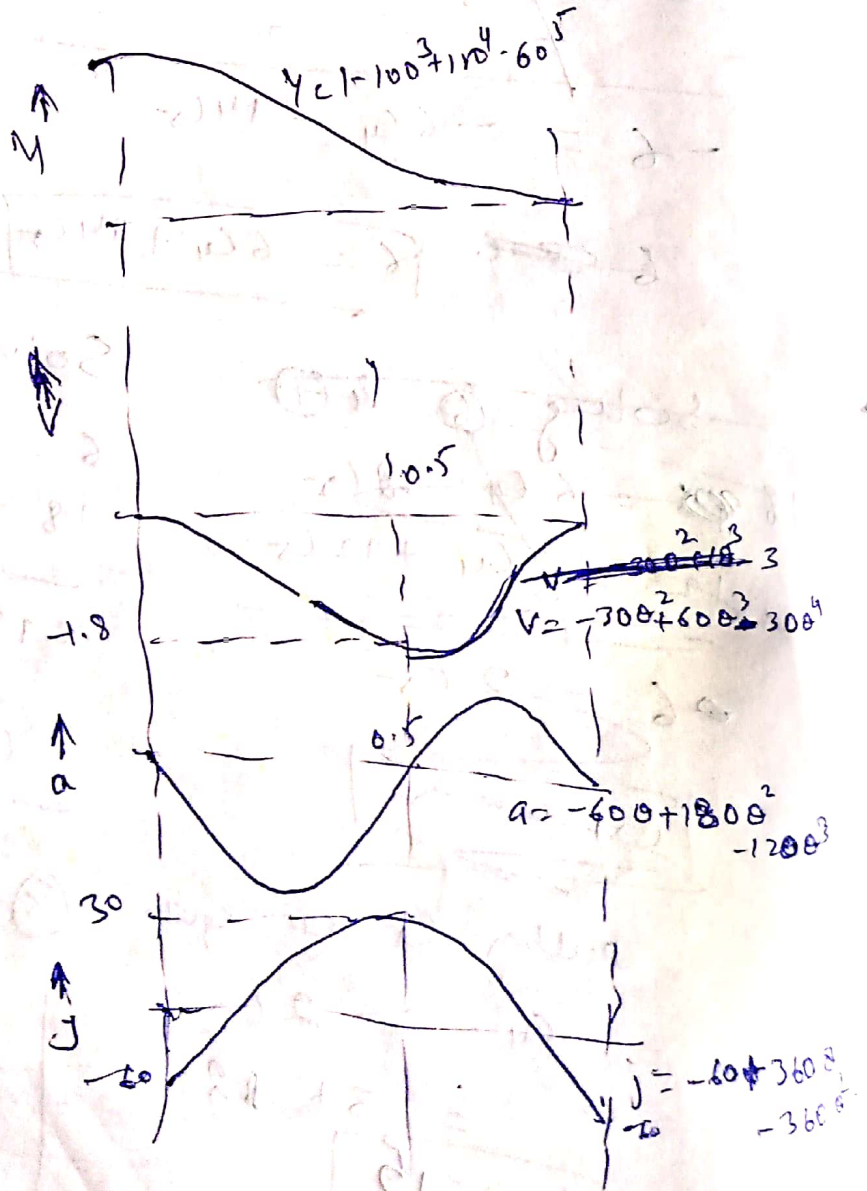 y = 1-10θ³+15θ⁴-6θ⁵
y
V
0.5
-1.8
V = -30θ²+60θ³-30θ⁴
a
0.5
a = -60θ+180θ²
-120θ³
30
j
-60
j = -60+360θ
-360θ²
-60